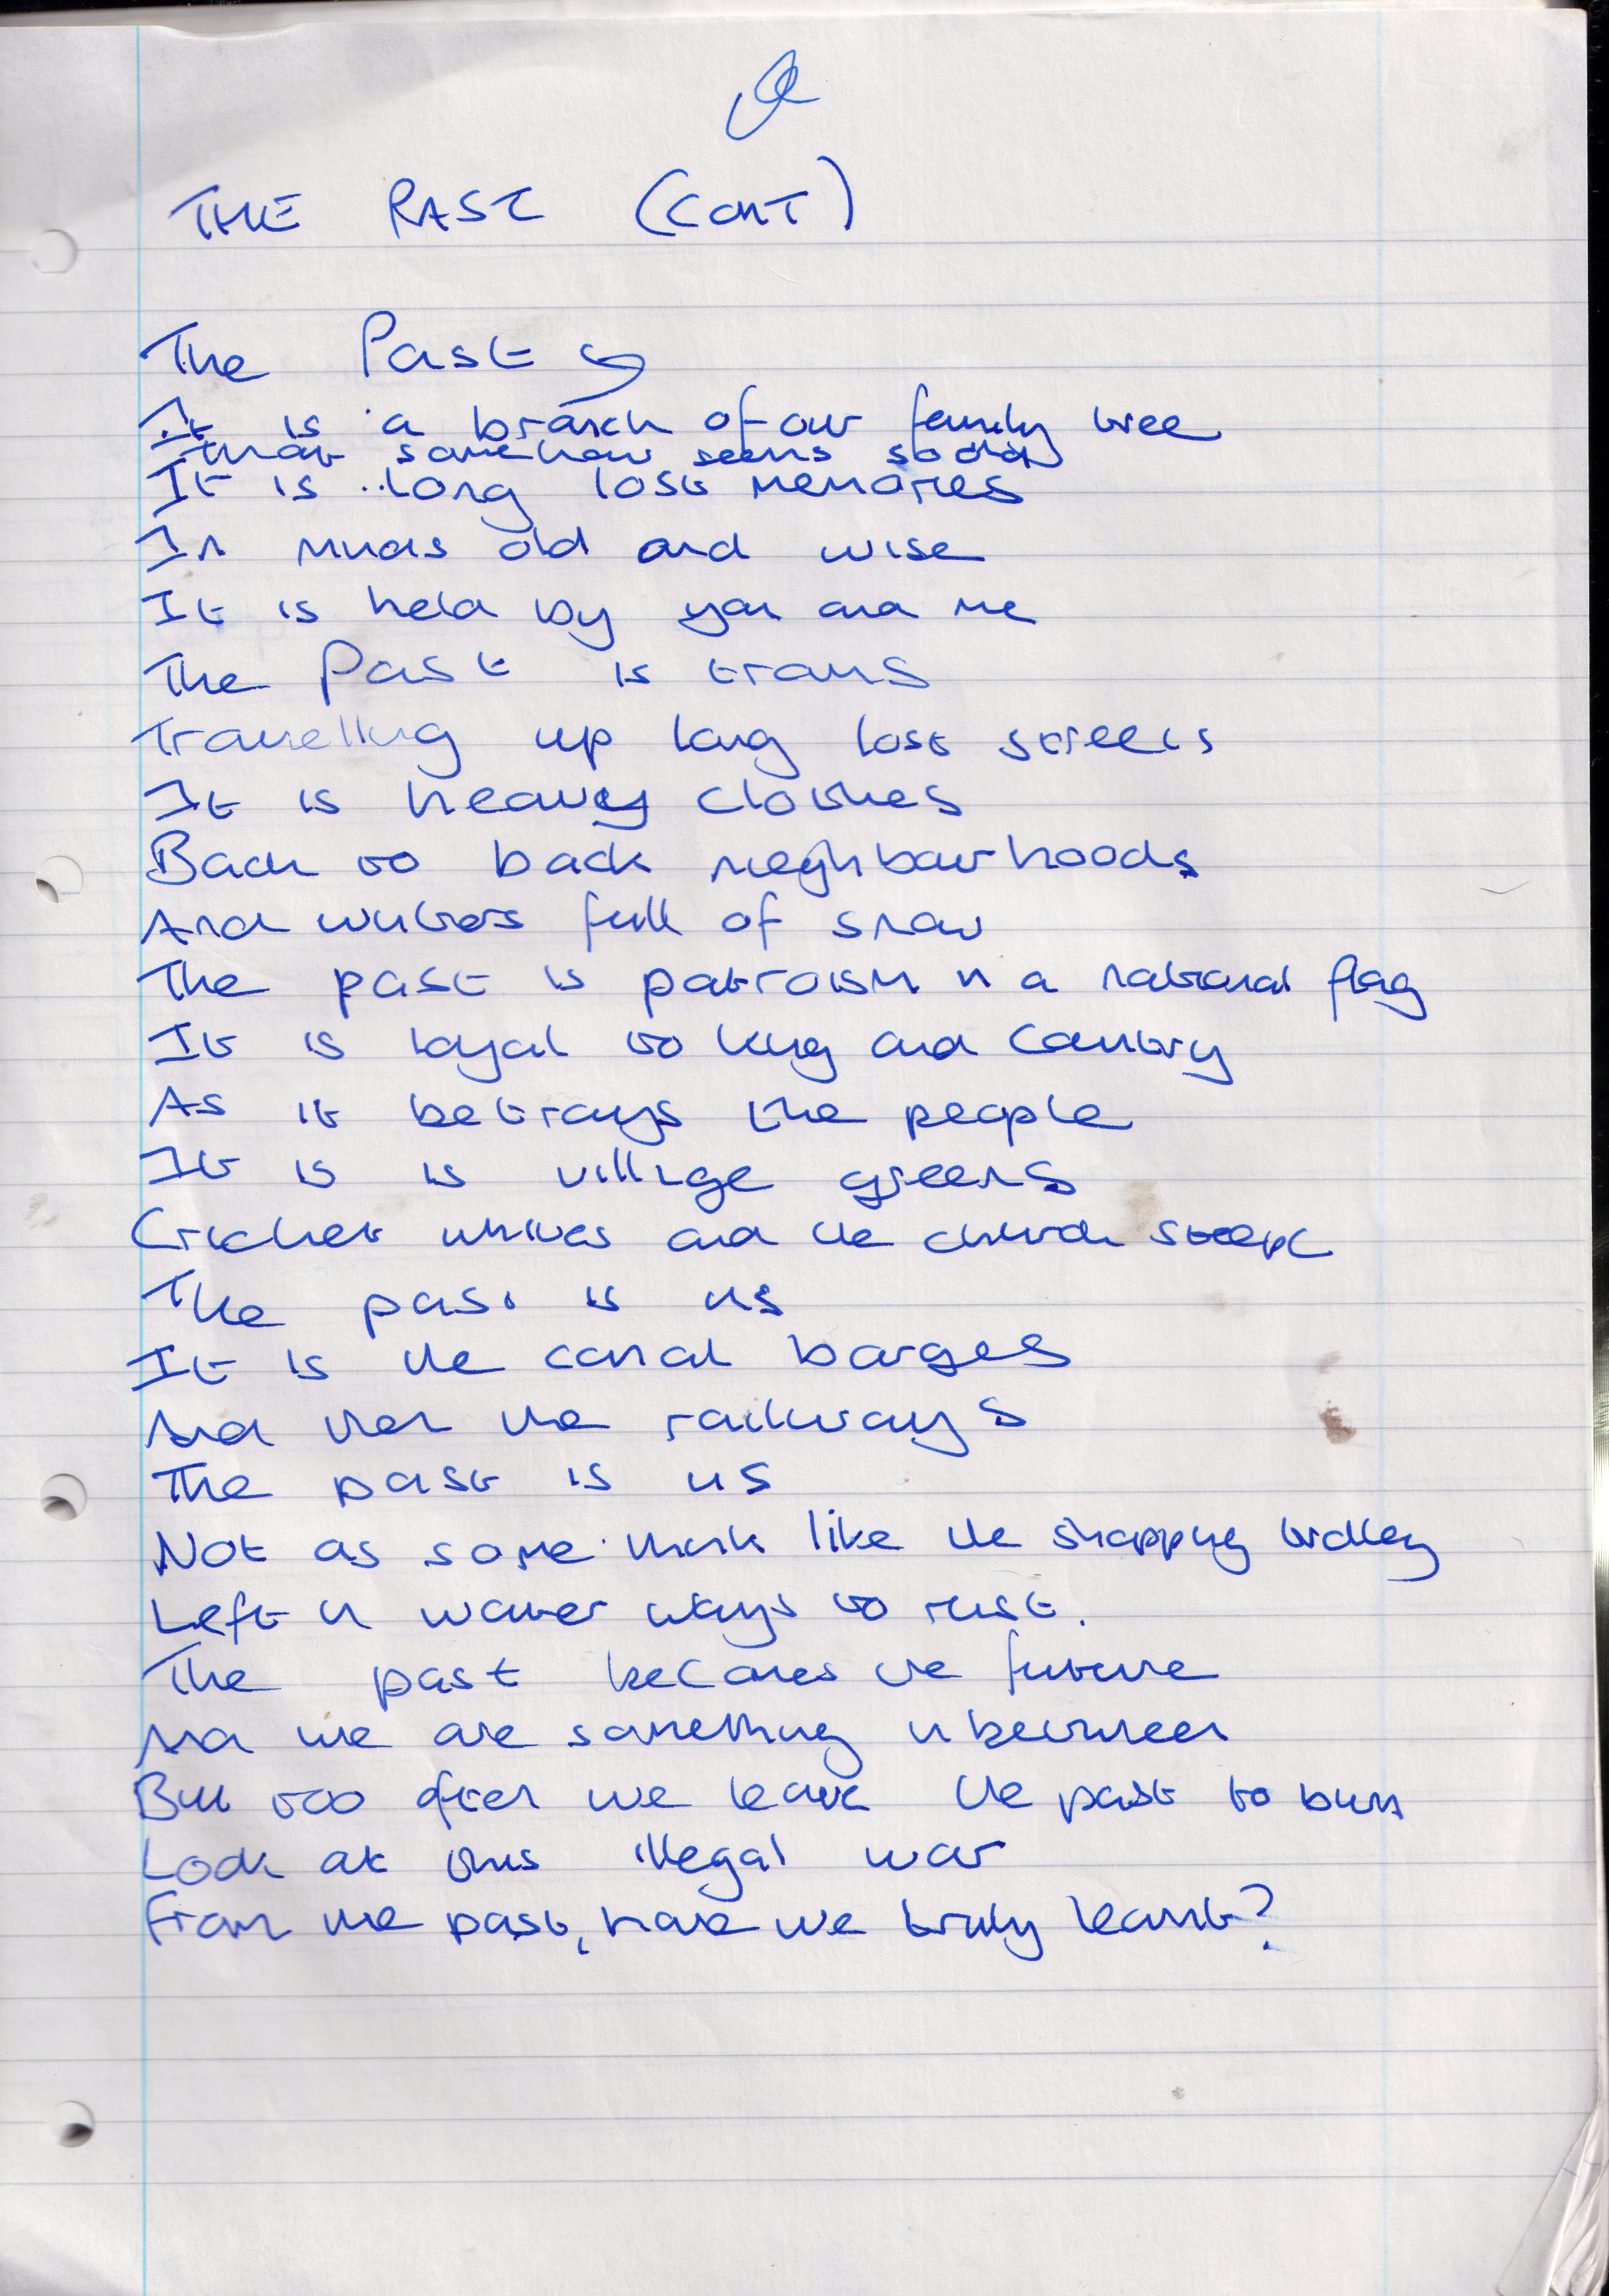 THE PAST (CONT)
The Past is
It is a branch of our family tree
that somehow seems
It is long lost memories
In minds old and wise
It is held by you and me
The Past is trams
Travelling up long lost streets
It is heavy clothes
Back to back neighbourhoods
And winters full of snow
The past is patroism in a national flag
It is loyal to king and country
As it betrays the people
It is is village greens
Cricket whites and the church steeple
The past is us
It is the canal barges
And then the railways
The past is us
Not as some think like the shopping trolley
Left in water ways to rust.
The past becomes the future
And we are something inbetween
But too often we leave the past to burn
Look at this illegal war
From the past, have we truly learnt?